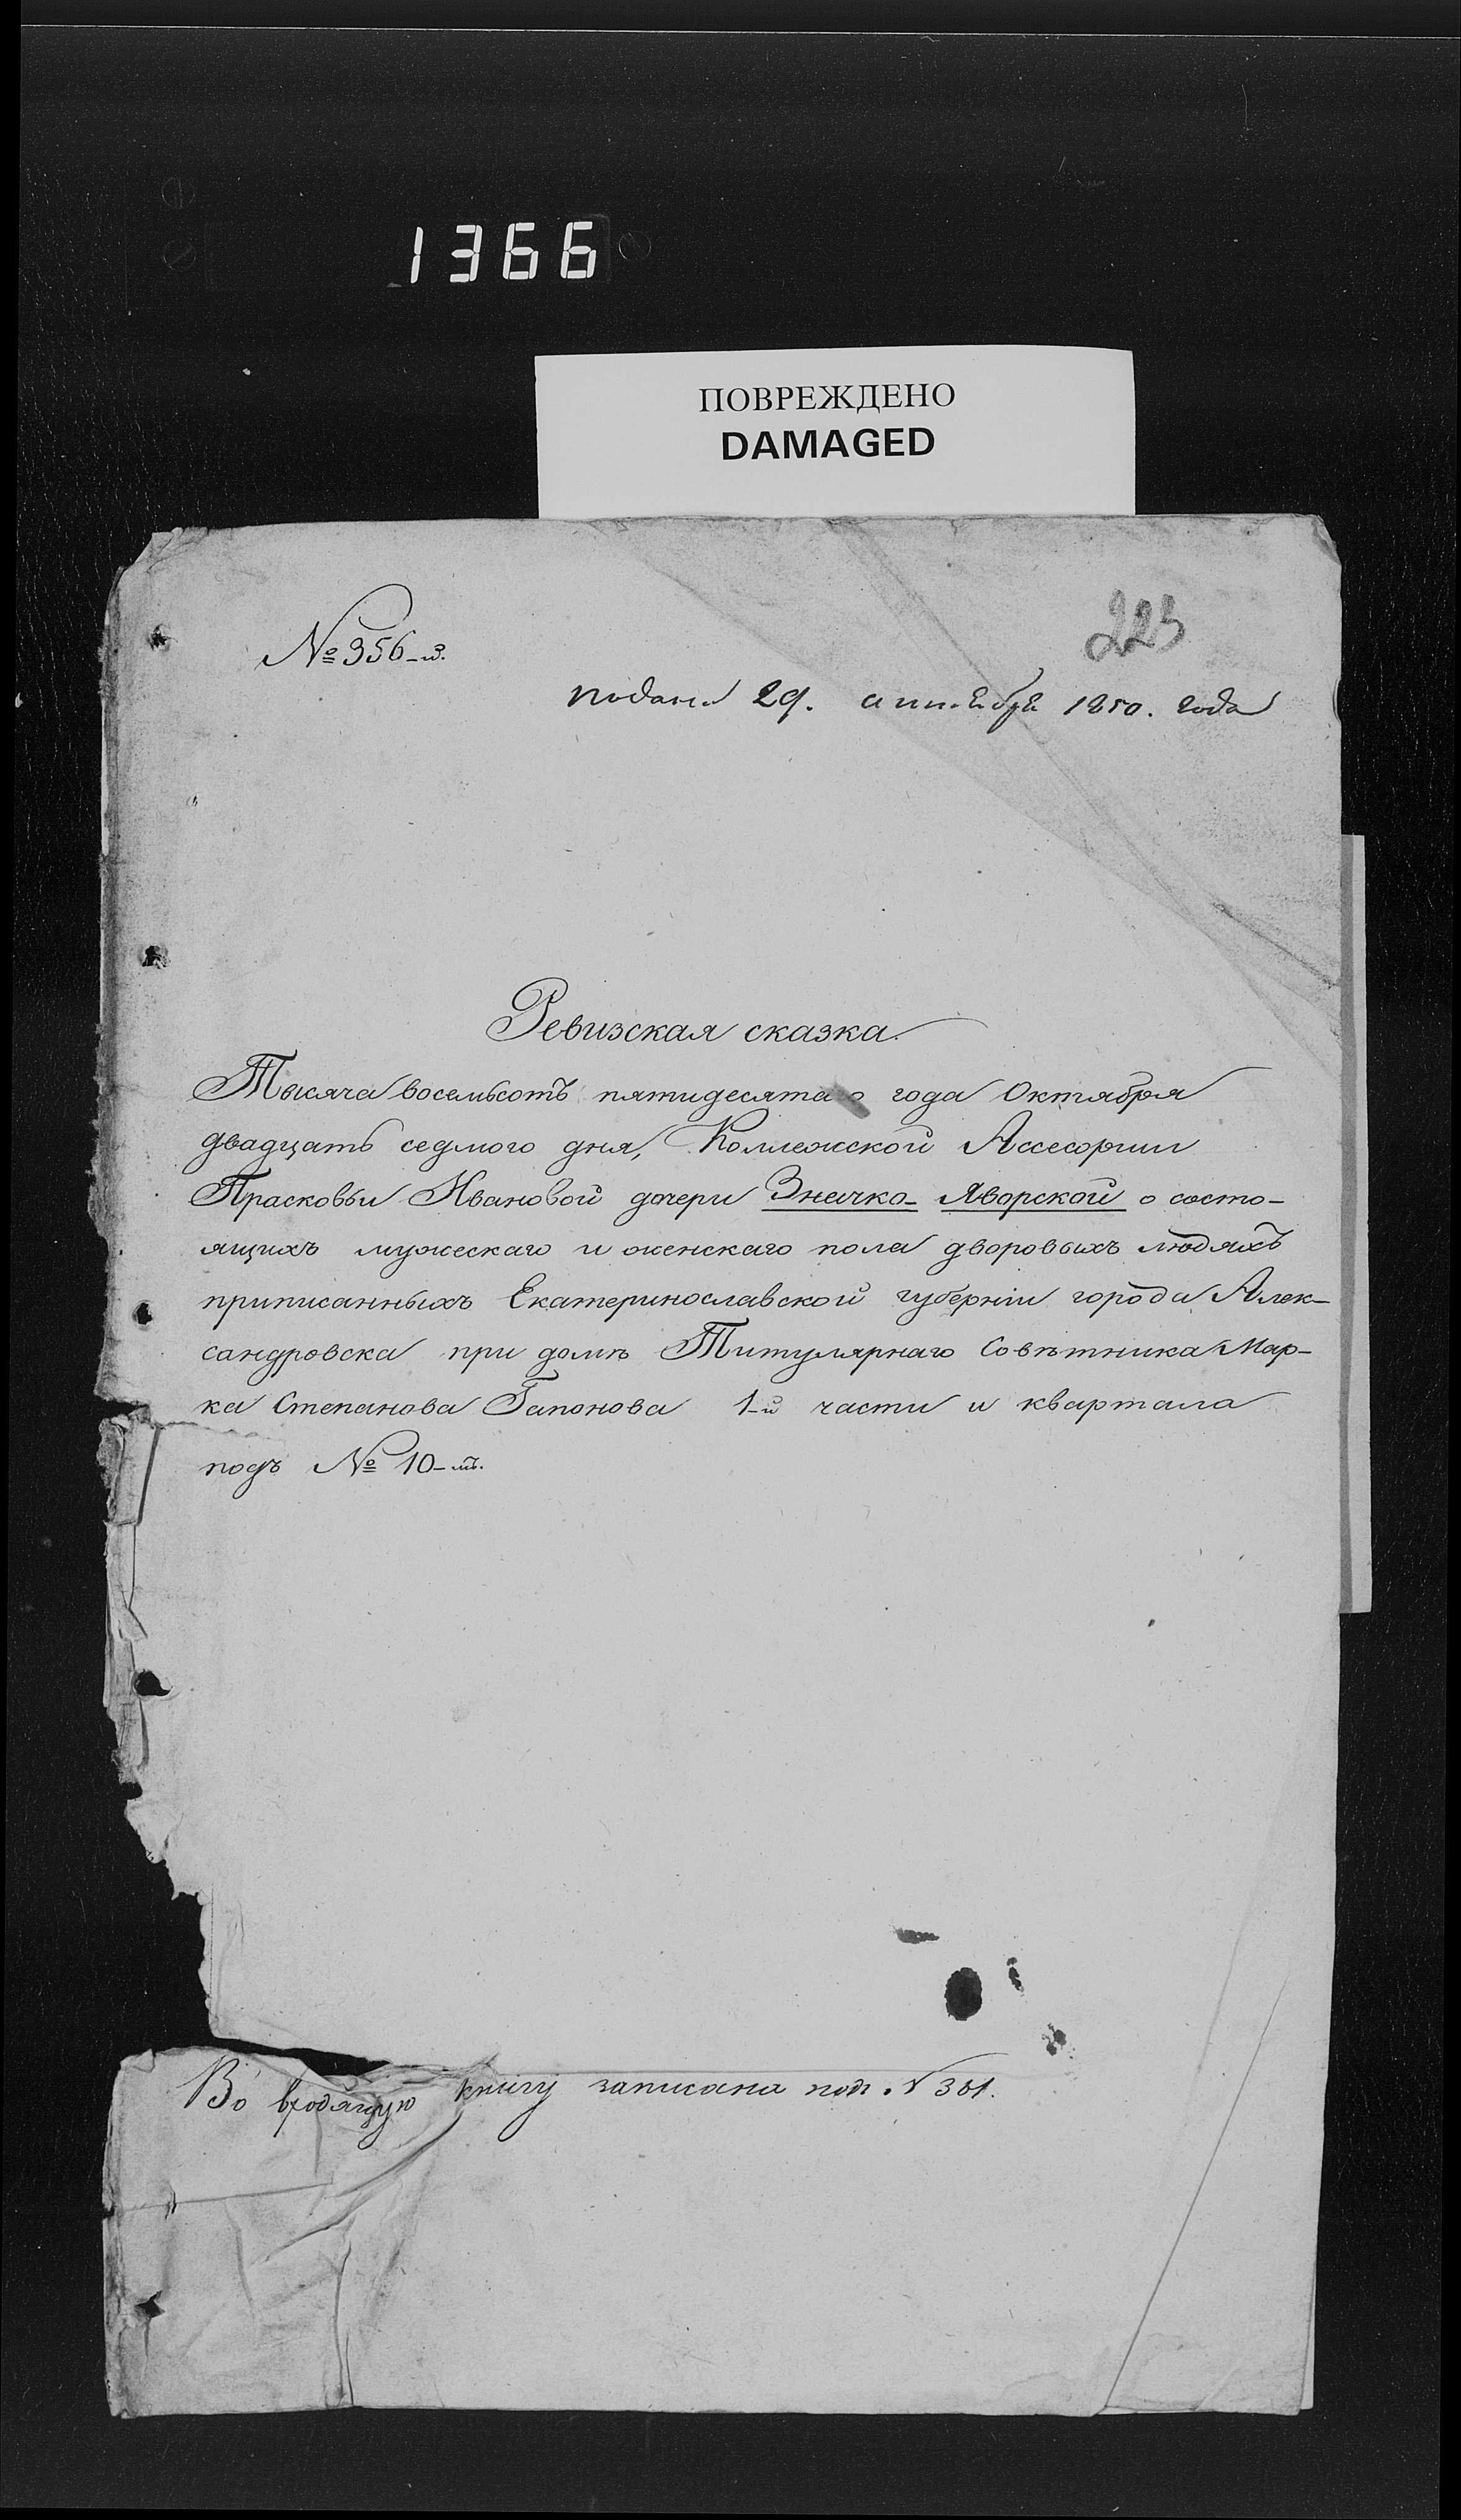 1366
ПОВРЕЖДЕНО
DAMAGED
223
№ 356-й.
подана 29. 1850. года
Ревизская сказка.
Тысяча восемьсотъ пятидесятаго года Октября
двадцать седмого дня, Коллежской Ассесорши
Прасковьи Ивановой дочери Значко- Яворской о состо-
ящихъ мужескаго и женскаго пола дворовыхъ людяхъ
приписанныхъ Екатеринославской губерніи города Алек-
сандровска при домѣ Титулярнаго Совѣтника Мар-
ка Степанова Гапонова 1-й части и квартала
подъ № 10-мъ.
Во входящую книгу записана подъ № 301.